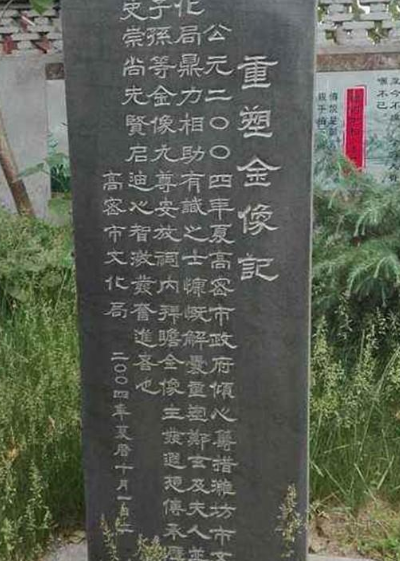 重塑金像記
公元二〇〇四年夏高密市政府傾心籌措濰坊市文
化局鼎力相助有識之士慷慨解囊重塑鄭玄及夫人並
子孫等金像九尊安放祠內拜瞻金像生發遐想傳承歷
史崇尚先賢启迪心智激發奮進喜也
高密市文化局
二〇〇四年夏曆十月一日